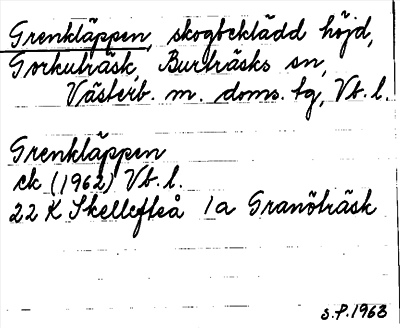 Grenkläppen, skogbeklädd höjd,
Gorkuträsk, Burträsks sn,
Västerb. m. doms. tg, Vb. l.
Grenkläppen
ek (1962) Vb. l.
22 K Skellefteå 1a Granöträsk
S.P. 1963